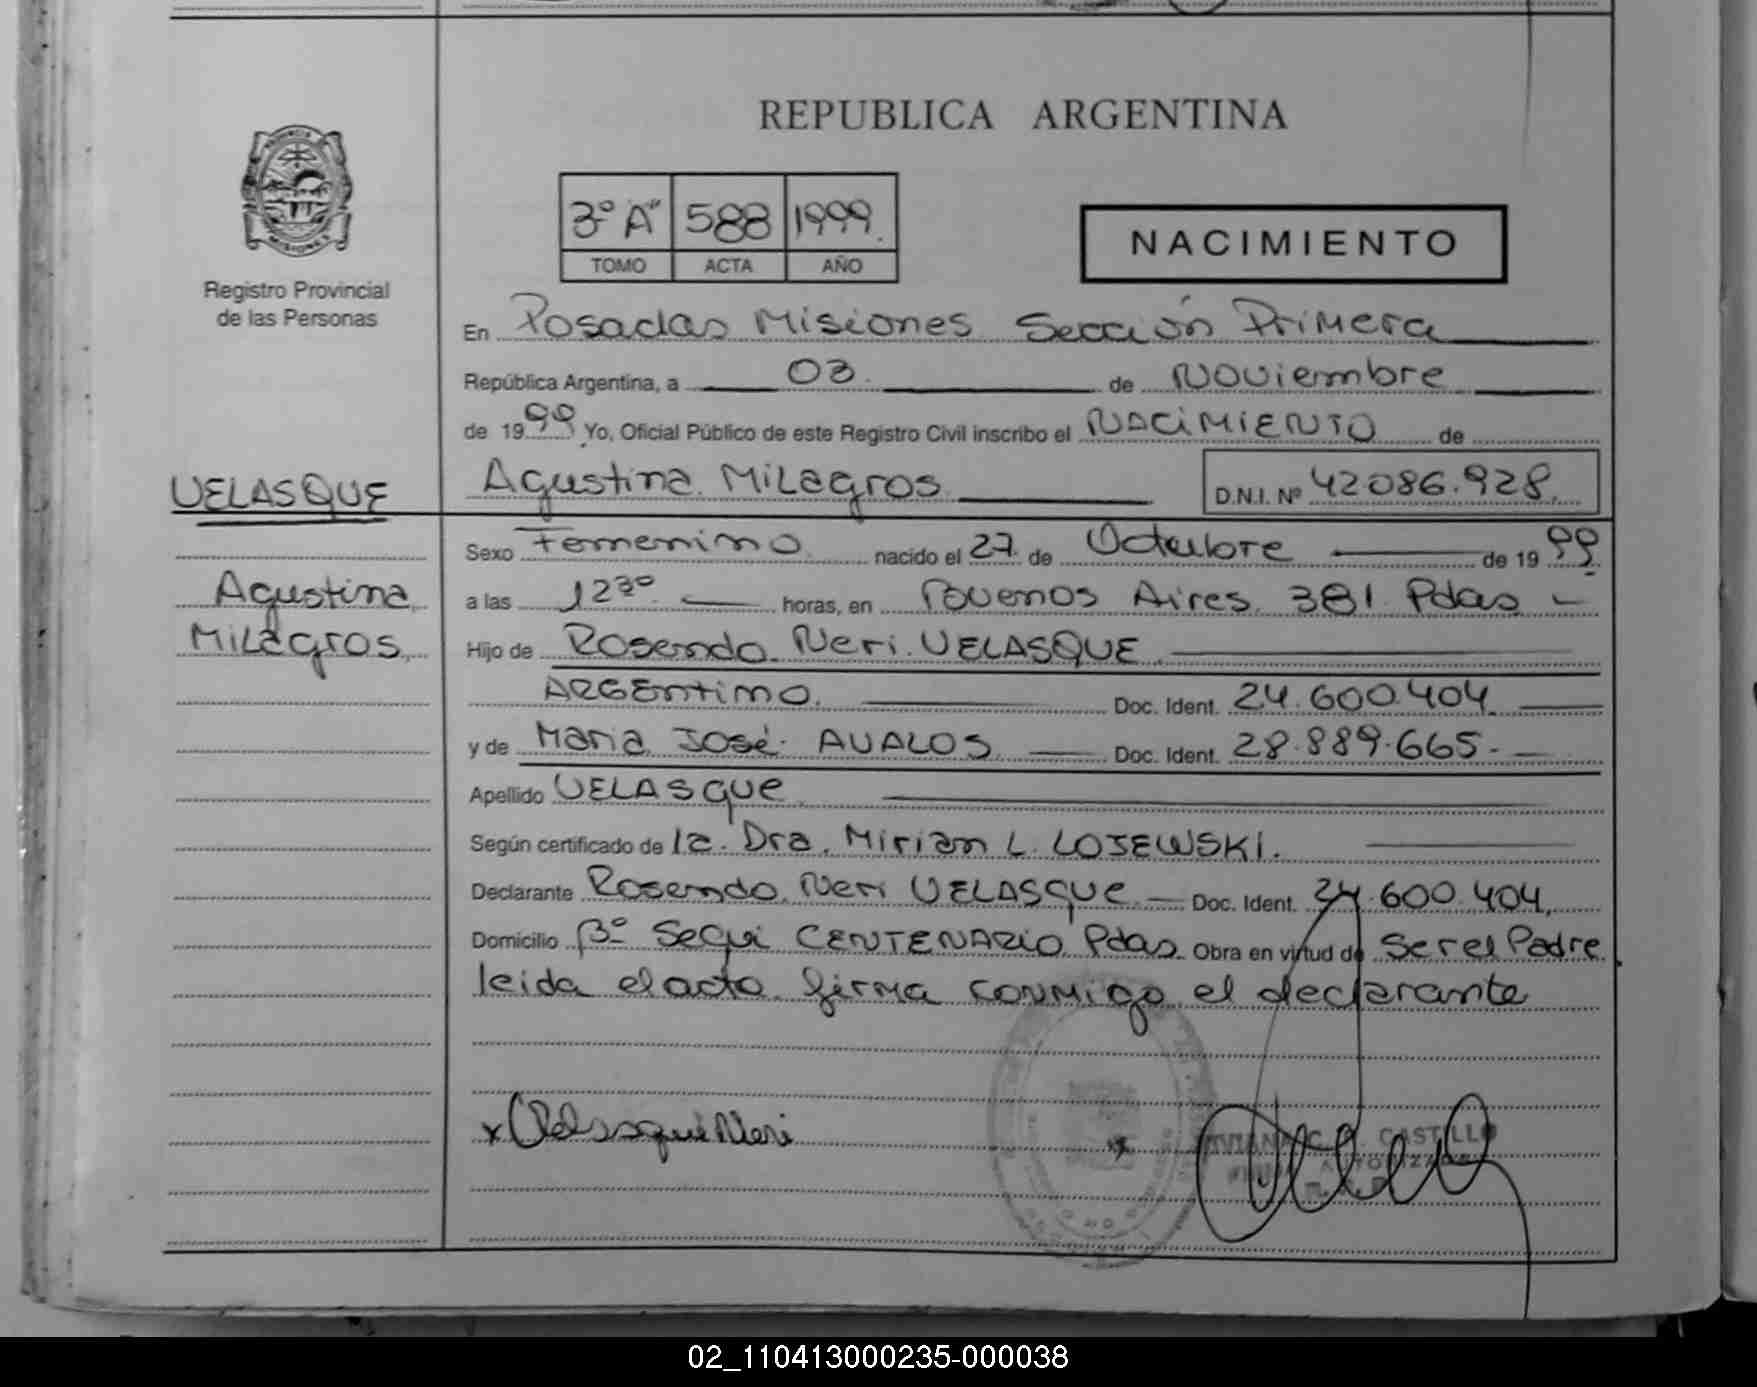 REPUBLICA ARGENTINA
PROVINCIA
MISIONES
Registro Provincial
de las Personas
3º "A" 588 1999.
TOMO ACTA AÑO
NACIMIENTO
En Posadas Misiones Sección Primera
República Argentina, a 03. de Noviembre
de 1999 Yo, Oficial Público de este Registro Civil inscribo el NACIMIENTO de
VELASQUE
Agustina Milagros
D.N.I. Nº 42086.928.
Sexo Femenino nacido el 27. de Octubre de 1999.
Agustina
Milagros.
a las 12³⁰ horas, en Buenos Aires 381 Pdas
Hijo de Rosendo Neri VELASQUE
ARGENTINO. Doc. Ident. 24.600.404
y de Maria José AVALOS Doc. Ident. 28.889.665.
Apellido VELASQUE
Según certificado de la Dra. Mirian L. LOJEWSKI.
Declarante Rosendo Neri VELASQUE Doc. Ident. 24.600.404.
Domicilio Bº Sequi CENTENARIO Pdas. Obra en virtud de Ser el Padre
leida el acta firma conmigo el declarante
x Velasque Neri
C. CASTILLO
02_110413000235-000038